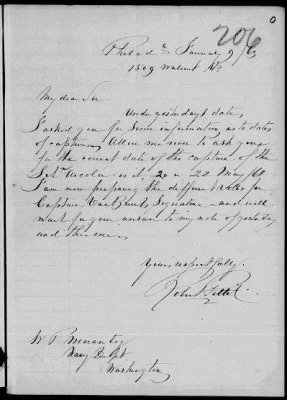 0
206
Philada January 9/63
1509 Walnut St.
My dear Sir
Under yesterday's date,
I asked you for some information as to dates
of captures. Allow me now to ask you
for the correct date of the capture of the
is it, 20 or 22 May/61
I am now preparing the different
Captain Signature and will
wait for your answer to my note of yesterday
and this one.
Yours respectfully,
John
W P
Navy Dept
Washington